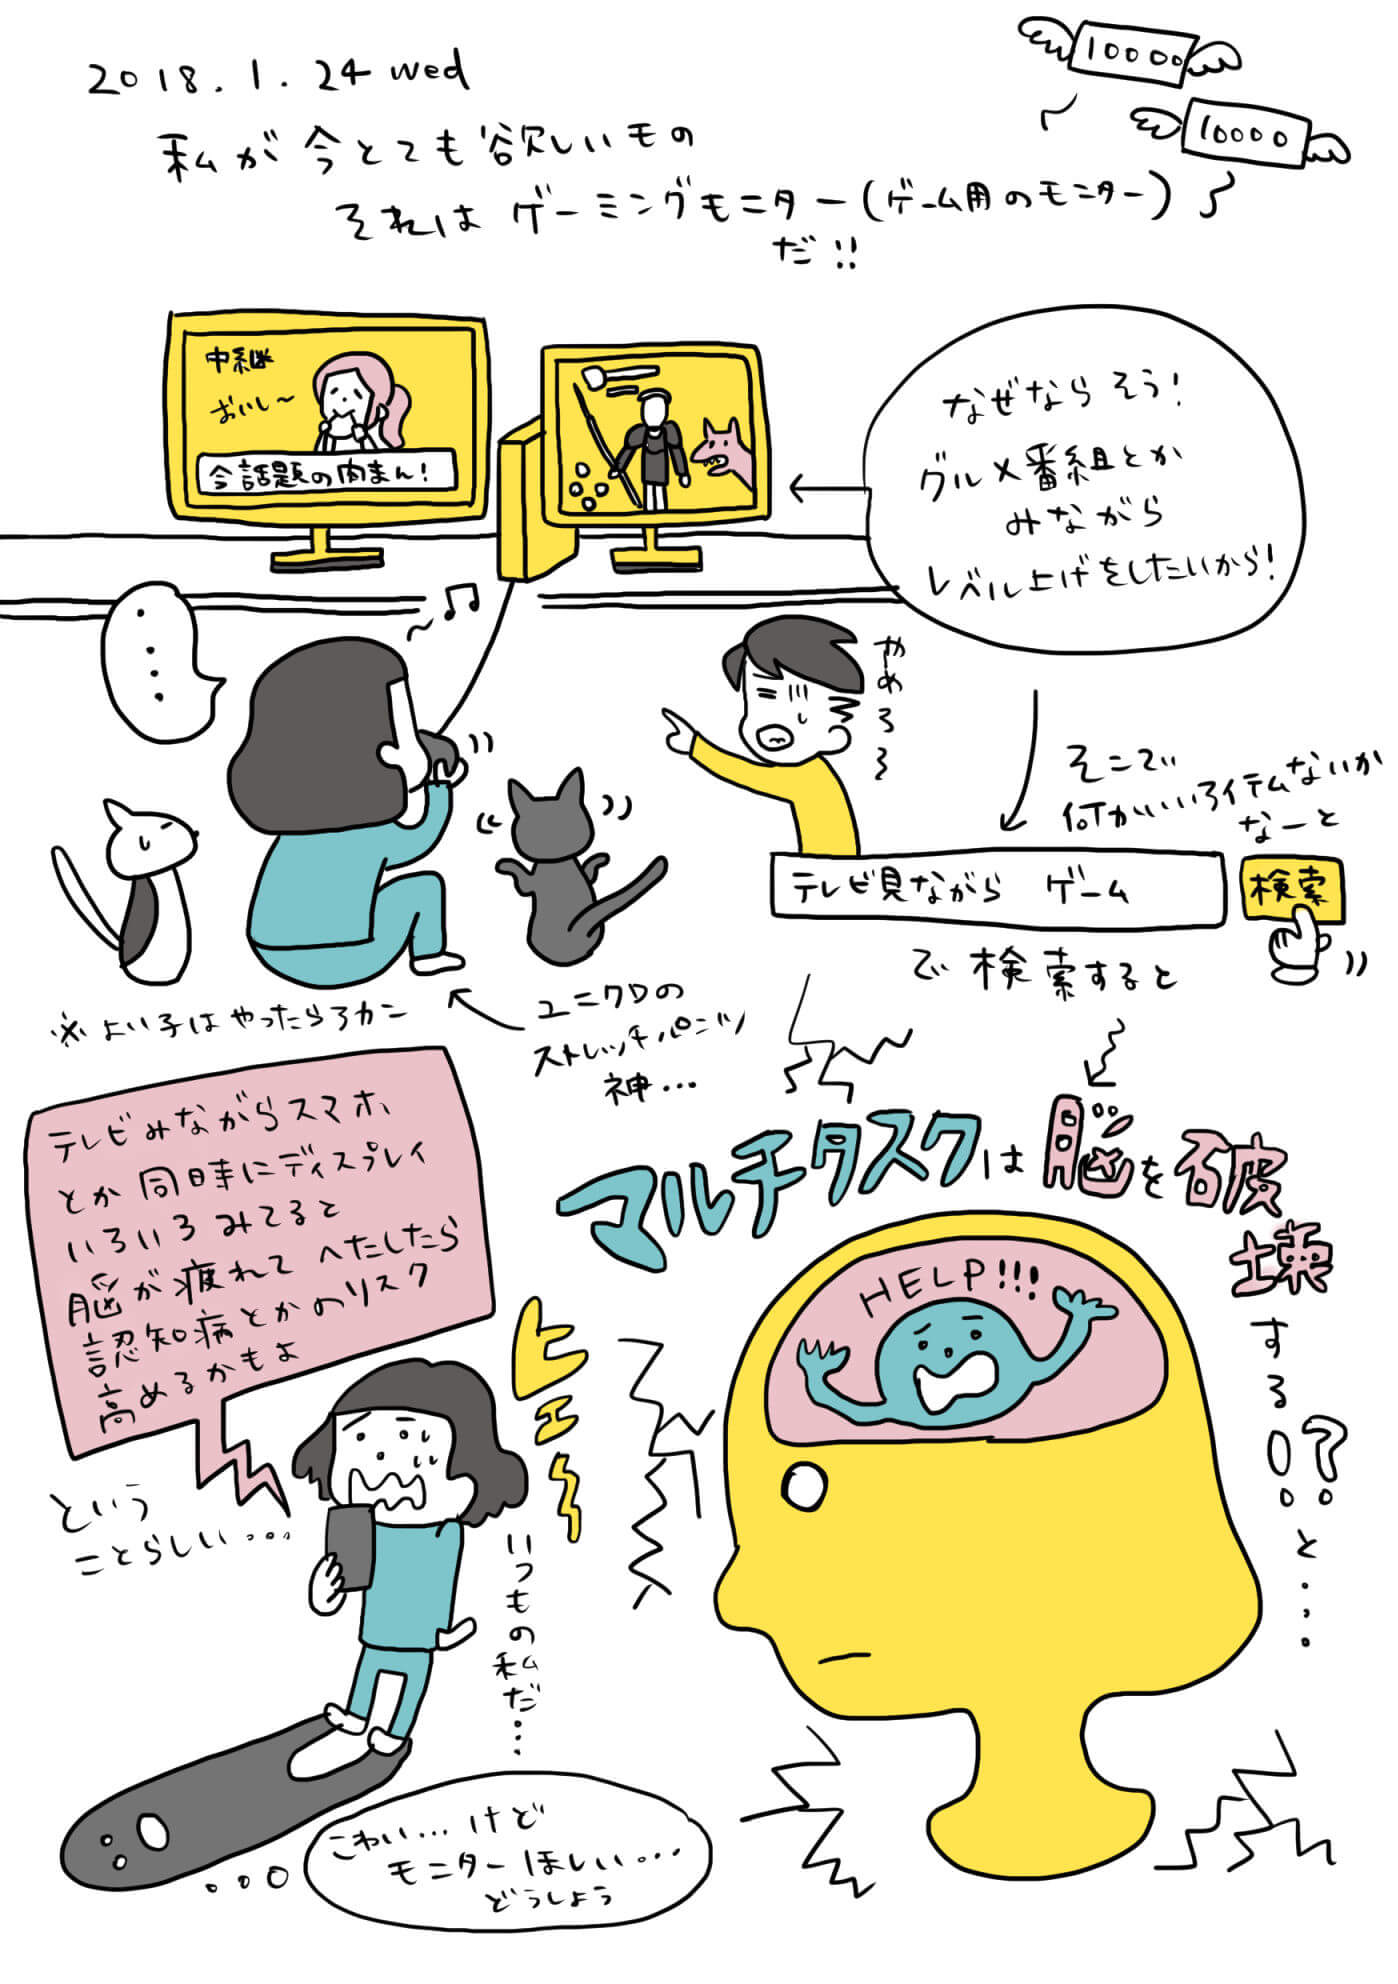 2018.1.24 wed
10000
10000
私が今とても欲しいもの
それはゲーミングモニター(ゲーム用のモニター)
だ!!
中継
おいし〜
今話題の肉まん!
なぜならそう!
グルメ番組とか
みながら
レベル上げをしたいから!
・・・・
やめろ〜
そこで
何かいいアイテムないか
なーと
テレビ見ながら ゲーム
検索
で検索すると
※よい子はやったらアカン
ユニクロの
ストレッチパンツ
神...
マルチタスクは脳を破
壊する!?と...
HELP!!!
テレビみながらスマホ、
とか同時にディスプレイ
いろいろみてると
脳が疲れてへたしたら
認知病とかのリスク
高めるかもよ
という
ことらしい...
ヒエ〜
いつもの私だ...
こわい...けど
モニターほしい...
どうしよう